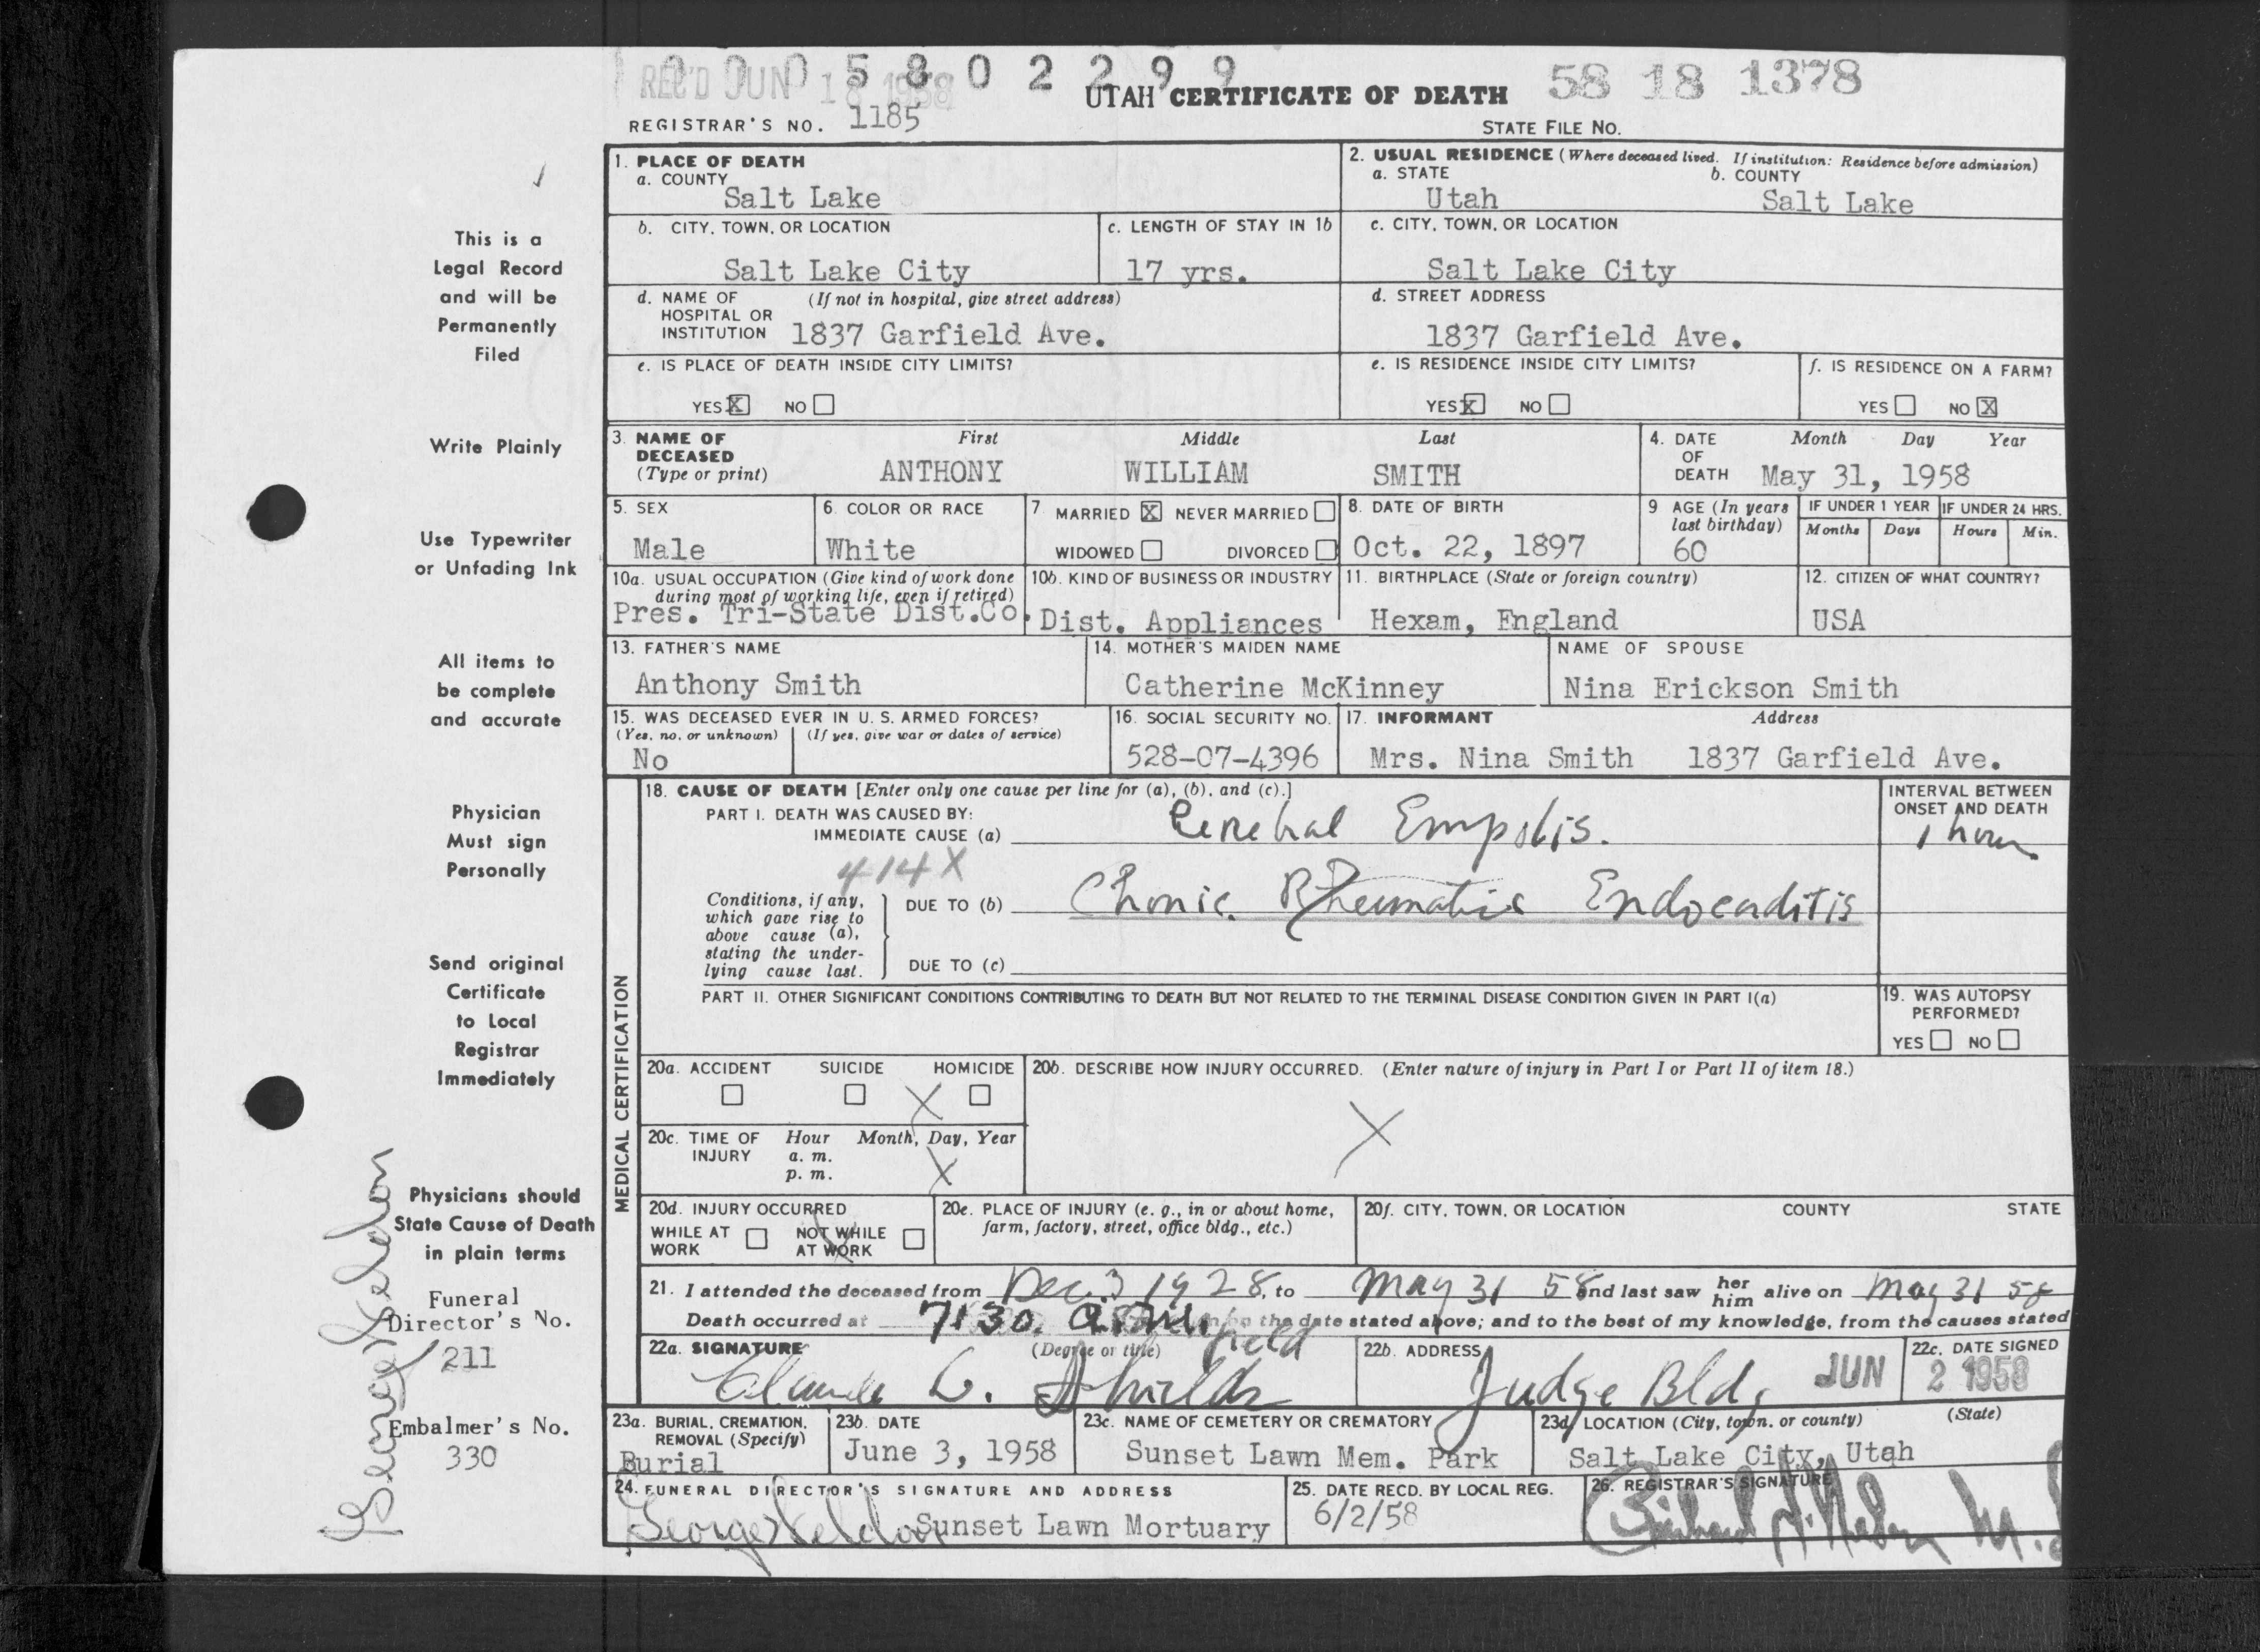 0 0 0 5 8 0 2 2 9 9
REC'D JUN 18 1958
UTAH CERTIFICATE OF DEATH
58 18 1378
REGISTRAR'S NO. 1185
STATE FILE NO.
1. PLACE OF DEATH
a. COUNTY
Salt Lake
2. USUAL RESIDENCE (Where deceased lived. If institution: Residence before admission)
a. STATE b. COUNTY
Utah Salt Lake
b. CITY, TOWN, OR LOCATION
Salt Lake City
c. LENGTH OF STAY IN 1b
17 yrs.
c. CITY, TOWN, OR LOCATION
Salt Lake City
d. NAME OF (If not in hospital, give street address)
HOSPITAL OR
INSTITUTION 1837 Garfield Ave.
d. STREET ADDRESS
1837 Garfield Ave.
e. IS PLACE OF DEATH INSIDE CITY LIMITS?
YES X NO
e. IS RESIDENCE INSIDE CITY LIMITS?
YES X NO
f. IS RESIDENCE ON A FARM?
YES NO X
3. NAME OF DECEASED
(Type or print)
First Middle Last
ANTHONY WILLIAM SMITH
4. DATE OF DEATH
Month Day Year
May 31, 1958
5. SEX
Male
6. COLOR OR RACE
White
7. MARRIED X NEVER MARRIED
WIDOWED DIVORCED
8. DATE OF BIRTH
Oct. 22, 1897
9 AGE (In years last birthday)
60
IF UNDER 1 YEAR IF UNDER 24 HRS.
Months Days Hours Min.
10a. USUAL OCCUPATION (Give kind of work done
during most of working life, even if retired)
Pres. Tri-State Dist.Co.
10b. KIND OF BUSINESS OR INDUSTRY
Dist. Appliances
11. BIRTHPLACE (State or foreign country)
Hexam, England
12. CITIZEN OF WHAT COUNTRY?
USA
13. FATHER'S NAME
Anthony Smith
14. MOTHER'S MAIDEN NAME
Catherine McKinney
NAME OF SPOUSE
Nina Erickson Smith
15. WAS DECEASED EVER IN U. S. ARMED FORCES?
(Yes, no, or unknown) (If yes, give war or dates of service)
No
16. SOCIAL SECURITY NO.
528-07-4396
17. INFORMANT Address
Mrs. Nina Smith 1837 Garfield Ave.
MEDICAL CERTIFICATION
18. CAUSE OF DEATH [Enter only one cause per line for (a), (b), and (c).]
PART I. DEATH WAS CAUSED BY:
IMMEDIATE CAUSE (a) Cerebral Empolis.
INTERVAL BETWEEN
ONSET AND DEATH
1 hour
414X
Conditions, if any,
which gave rise to
above cause (a),
stating the under-
lying cause last.
DUE TO (b) Chronic Rheumatic Endocarditis
DUE TO (c)
PART II. OTHER SIGNIFICANT CONDITIONS CONTRIBUTING TO DEATH BUT NOT RELATED TO THE TERMINAL DISEASE CONDITION GIVEN IN PART I(a)
19. WAS AUTOPSY
PERFORMED?
YES NO
20a. ACCIDENT SUICIDE HOMICIDE
X
20b. DESCRIBE HOW INJURY OCCURRED. (Enter nature of injury in Part I or Part II of item 18.)
X
20c. TIME OF INJURY
Hour Month, Day, Year
a. m.
p. m.
X
20d. INJURY OCCURRED
WHILE AT WORK
NOT WHILE AT WORK
X
20e. PLACE OF INJURY (e. g., in or about home,
farm, factory, street, office bldg., etc.)
20f. CITY, TOWN, OR LOCATION COUNTY STATE
21. I attended the deceased from Dec. 3 1928, to May 31 58 and last saw her him alive on May 31 58
Death occurred at 7:30 a.m. on the date stated above; and to the best of my knowledge, from the causes stated
22a. SIGNATURE (Degree or title)
Claude L. Shields
22b. ADDRESS
Judge Bldg
22c. DATE SIGNED
JUN 2 1958
23a. BURIAL, CREMATION,
REMOVAL (Specify)
Burial
23b. DATE
June 3, 1958
23c. NAME OF CEMETERY OR CREMATORY
Sunset Lawn Mem. Park
23d. LOCATION (City, town, or county) (State)
Salt Lake City, Utah
24. FUNERAL DIRECTOR'S SIGNATURE AND ADDRESS
Sunset Lawn Mortuary
25. DATE RECD. BY LOCAL REG.
6/2/58
26. REGISTRAR'S SIGNATURE
This is a
Legal Record
and will be
Permanently
Filed
Write Plainly
Use Typewriter
or Unfading Ink
All items to
be complete
and accurate
Physician
Must sign
Personally
Send original
Certificate
to Local
Registrar
Immediately
Physicians should
State Cause of Death
in plain terms
Funeral
Director's No.
211
Embalmer's No.
330